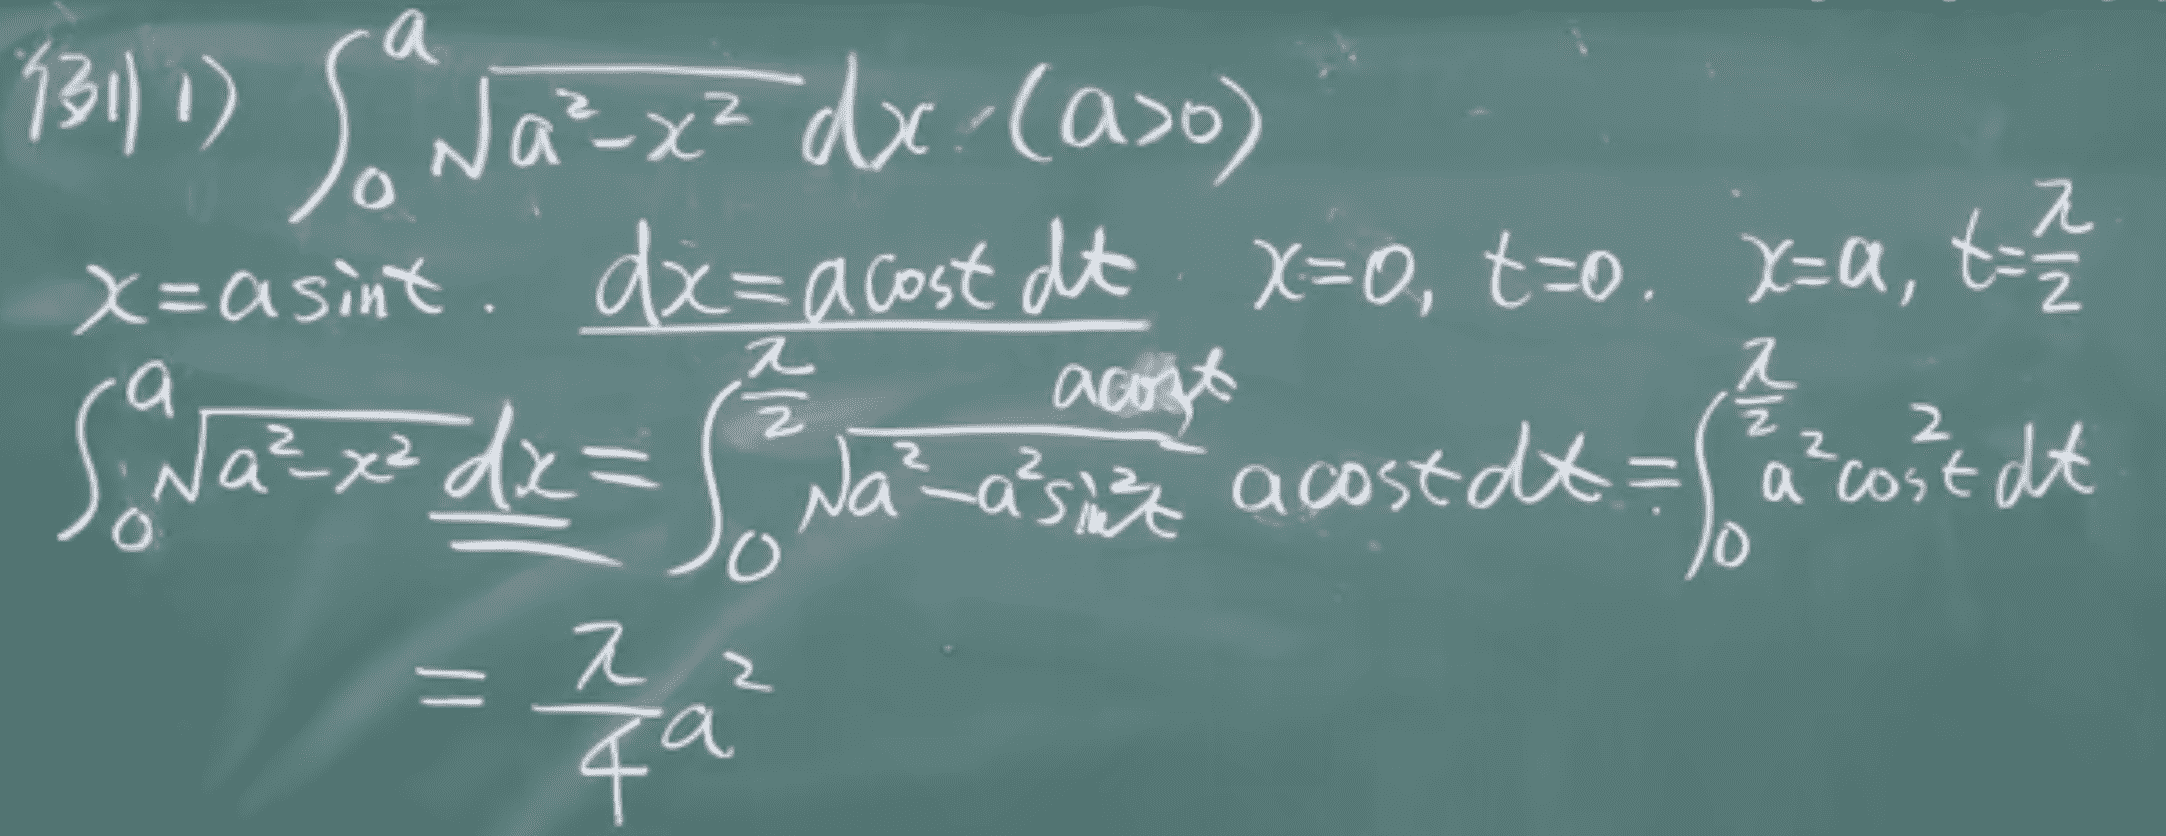 例1) ∫₀ᵃ √(a²-x²) dx. (a>0)
x=a sint. dx=a cost dt x=0, t=0. x=a, t=π/2
a cost
∫₀ᵃ √(a²-x²) dx = ∫₀^(π/2) √(a²-a²sin²t) a cost dt = ∫₀^(π/2) a²cos²t dt
= π/4 a²